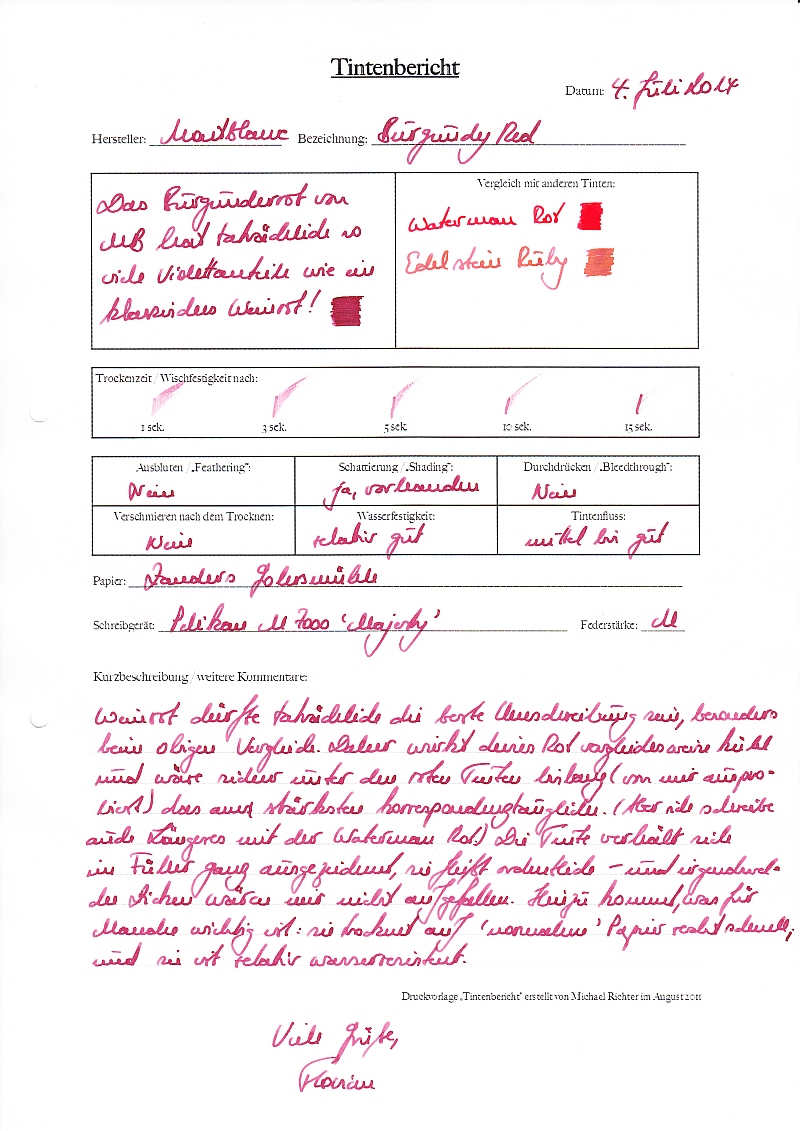 Tintenbericht
Datum: 4. Juli 2017
Hersteller: Montblanc Bezeichnung: Burgundy Red
Das Burgunderrot von
MB hat tatsächlich so
viele Violettanteile wie ein
klassisches Weinrot!
Vergleich mit anderen Tinten:
Waterman Rot
Edelstein Ruby
Trockenzeit / Wischfestigkeit nach:
1 sek. 3 sek. 5 sek. 10 sek. 15 sek.
Ausbluten / „Feathering“: Schattierung / „Shading“: Durchdrücken / „Bleedthrough“:
Nein ja, vorhanden Nein
Verschmieren nach dem Trocknen: Wasserfestigkeit: Tintenfluss:
Nein relativ gut mittel bis gut
Papier: Zanders Gohrsmühle
Schreibgerät: Pelikan M 7000 'Majesty' Federstärke: M
Kurzbeschreibung / weitere Kommentare:
Weinrot dürfte tatsächlich die beste Umschreibung sein, besonders
beim obigen Vergleich. Daher wirkt dieses Rot vergleichsweise kühl
und wäre sicher unter den roten Tinten bislang (von mir auspro-
biert) das am stärksten korrespondenztaugliche. (Aber ich schreibe
auch Längeres mit der Waterman Rot) Die Tinte verhält sich
im Füller ganz ausgezeichnet, sie fließt ordentlich – und irgendwel-
che Zicken wären mir nicht aufgefallen. Hinzu kommt, was für
Manche wichtig ist: sie trocknet auf 'normalem' Papier recht schnell,
und sie ist relativ wasserresistent.
Druckvorlage „Tintenbericht“ erstellt von Michael Richter im August 2011
Viele Grüße,
Florian